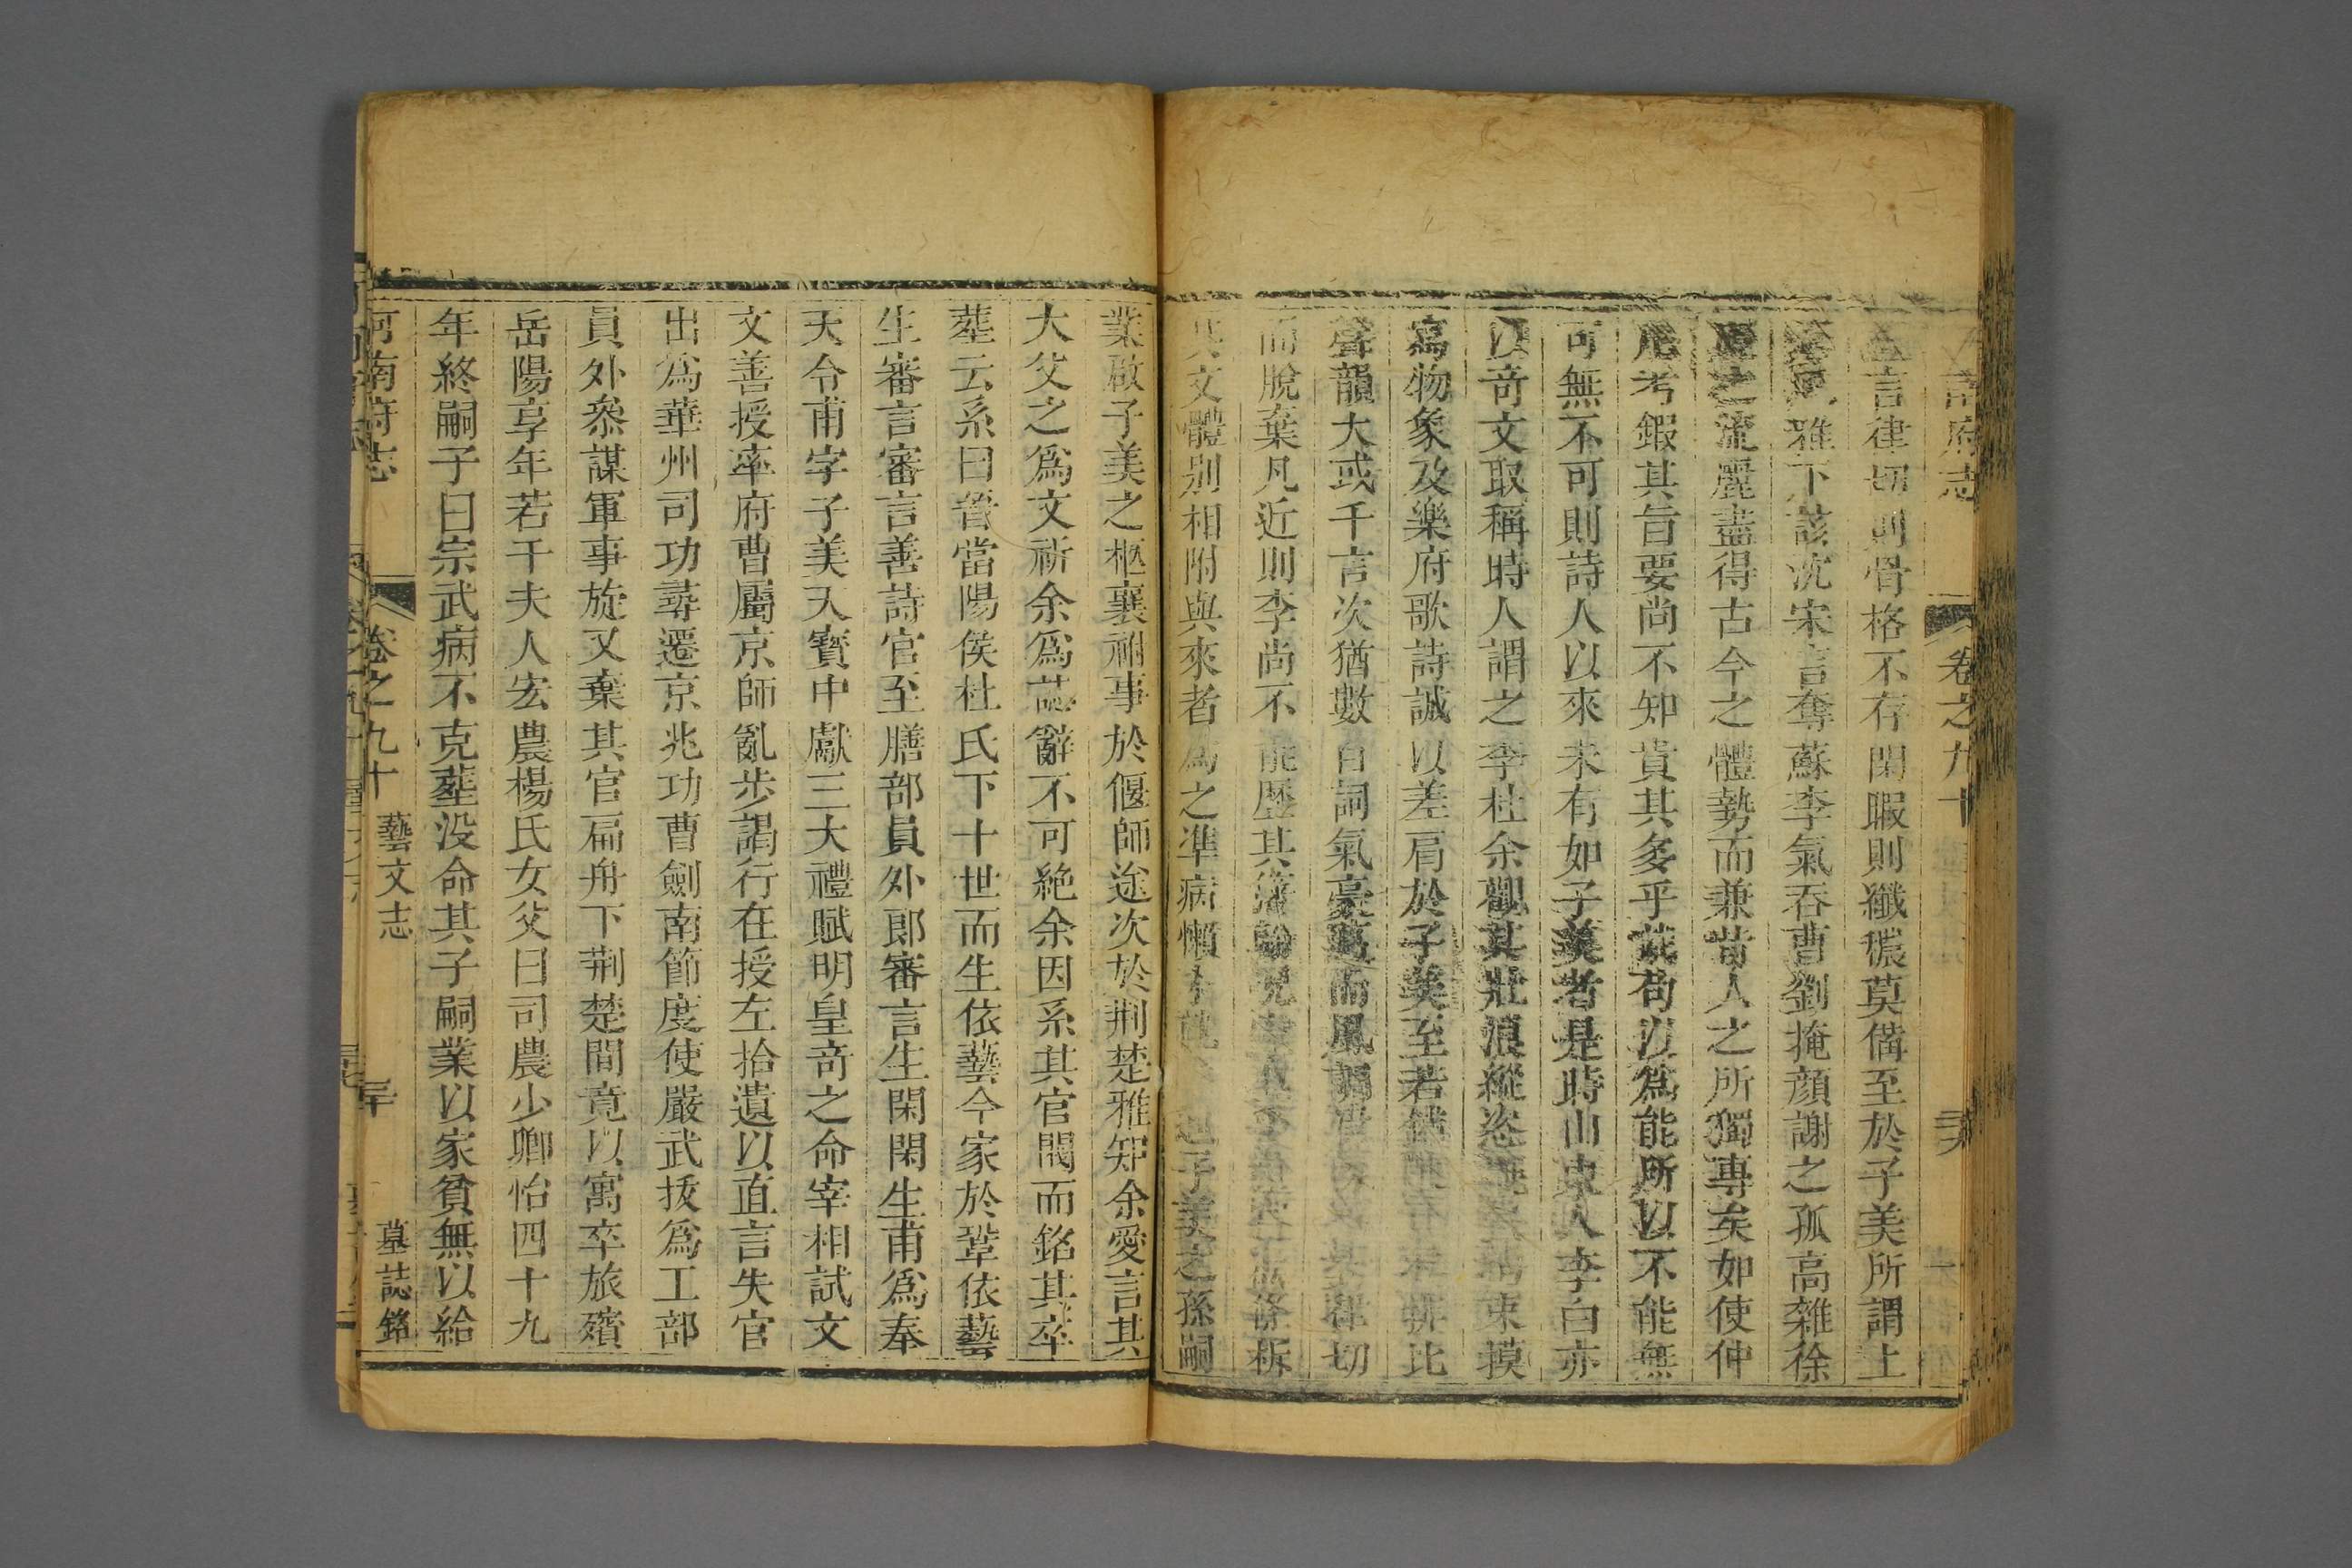 河南府志 卷之九十
言律切則骨格不存閑暇則纖穠莫備至於子美所謂上
雅下該沈宋言奪蘇李氣吞曹劉掩顏謝之孤高雜徐
之流麗盡得古今之體勢而兼昔人之所獨專矣如使仲
尼考鍜其旨要尚不知貴其多乎哉苟以為能所以不能無
可無不可則詩人以來未有如子美者是時山東人李白亦
以竒文取稱時人謂之李杜余觀其壯浪縱恣 束摸
寫物象及樂府歌詩誠以差肩於子美至若鋪 比
聲韻大或千言次猶數百詞氣豪邁而風調 律切
而脫棄凡近則李尚不能歷其藩翰 條析
其文體別相附與來者為之準病懶 子美之孫嗣
業啟子美之柩襄祔事於偃師途次於荆楚雅知余愛言其
大父之為文祈余為誌辭不可絶余因系其官閥而銘其卒
葬云系曰晉當陽侯杜氏下十世而生依藝令家於鞏依藝
生審言審言善詩官至膳部員外郎審言生閑閑生甫為奉
天令甫字子美天寳中獻三大禮賦明皇竒之命宰相試文
文善授率府曹屬京師亂步謁行在授左拾遺以直言失官
出為華州司功尋遷京兆功曹劍南節度使嚴武拔為工部
員外叅謀軍事旋又棄其官扁舟下荆楚間竟以寓卒旅殯
岳陽享年若干夫人宏農楊氏女父曰司農少卿怡四十九
年終嗣子曰宗武病不克葬没命其子嗣業以家貧無以給
河南府志 卷之九十 藝文志 墓誌銘